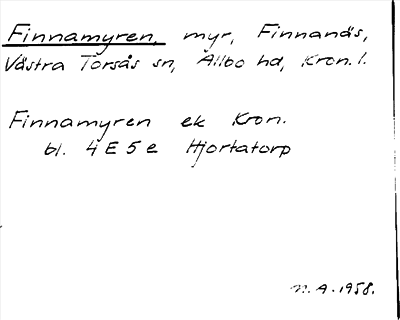 Finnamyren, myr, Finnanäs,
Västra Torsås sn, Allbo hd, Kron. l.
Finnamyren ek Kron.
bl. 4 E 5 e Hjortatorp
n. A. 1958.